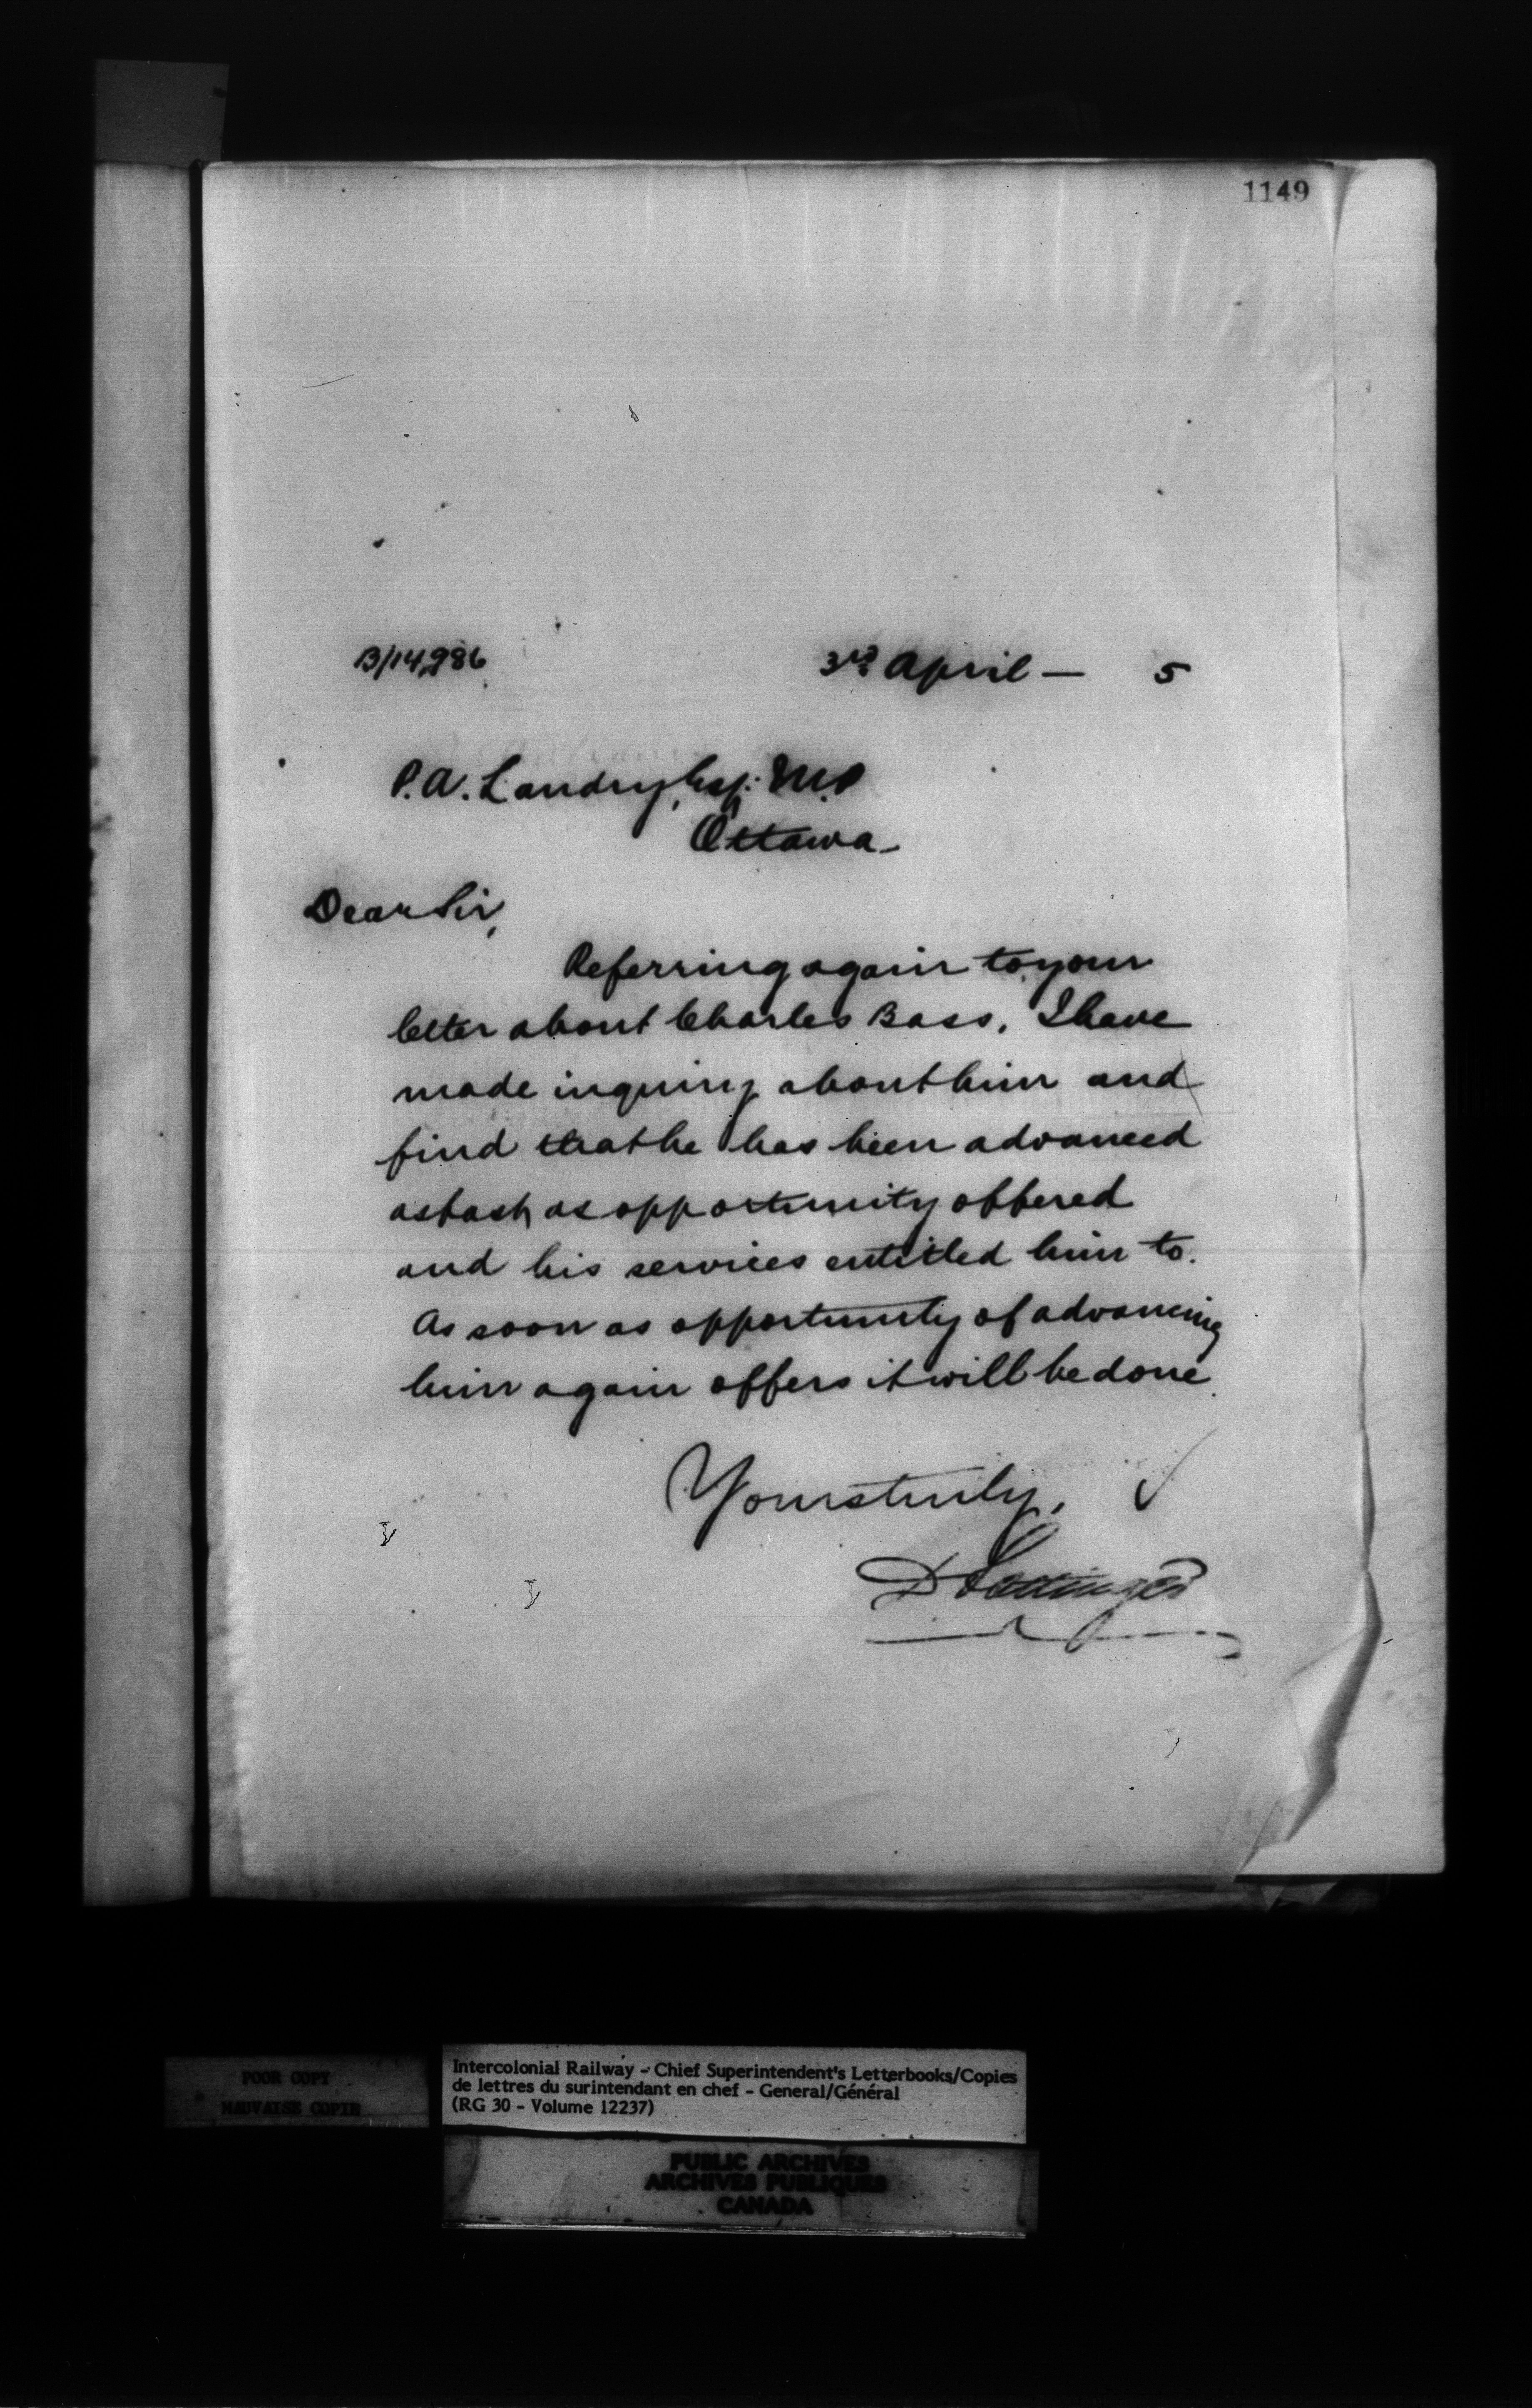 1149
B/14,986
3rd April — 5
P.A. Landry, Esq: M.P
Ottawa -
Dear Sir,
Referring again to your
letter about Charles Bass, I have
made inquiry about him and
find that he has been advanced
as fast as opportunity offered
and his services entitled him to.
As soon as opportunity of advancing
him again offers it will be done
Yours truly,
D Pottinger
POOR COPY
MAUVAISE COPIE
Intercolonial Railway - Chief Superintendent's Letterbooks/Copies
de lettres du surintendant en chef - General/Général
(RG 30 - Volume 12237)
PUBLIC ARCHIVES
ARCHIVES PUBLIQUES
CANADA